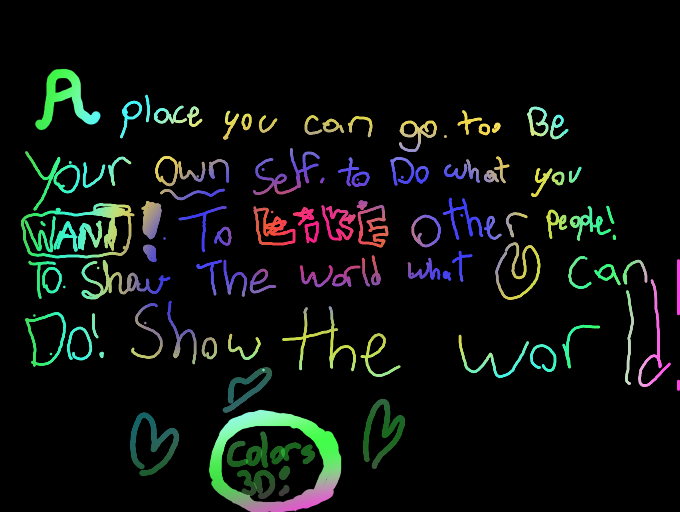 A place you can go. to. Be
Your Own Self. to Do what you
WANT! To LIKE Other People!
To. Show The world what U can
Do! Show the world
Colors
3D!